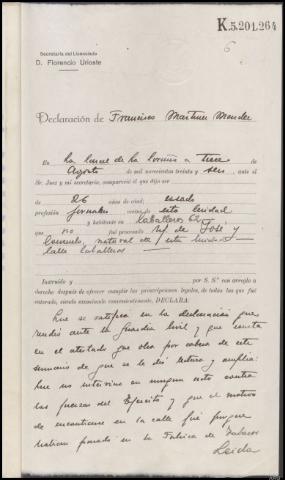 K.5.201,264
6
Secretaría del Licenciado
D. Florencio Urioste
Declaración de Francisco Martinez Mendez
En La Linea de La a trece de
Agosto de mil novecientos treinta y seis, ante el
Sr. Juez y mi secretario, compareció el que dijo ser
de 26 años, estado
profesión jornalero vecino de esta Ciudad
y habitante en Caballeros 62
que no fué procesado hijo de José y
Consuelo, natural de esta
calle Caballeros
Instruído y por S. Sª con arreglo a
derecho después de ofrecer cumplir las prescripciones legales, de todas las que fué
enterado, siendo examinado convenientemente, DECLARA:
Que se ratifica en la declaración que
rindió ante la Guardia Civil y que consta
en el atestado que obra por cabeza de este
sumario de que se le dió lectura y amplia:
que no intervino en ningun acto contra
las fuerzas del Ejercito y que el motivo
de encontrarse en la calle fué porque
habian parado en la Fabrica de Tabacos
Leida